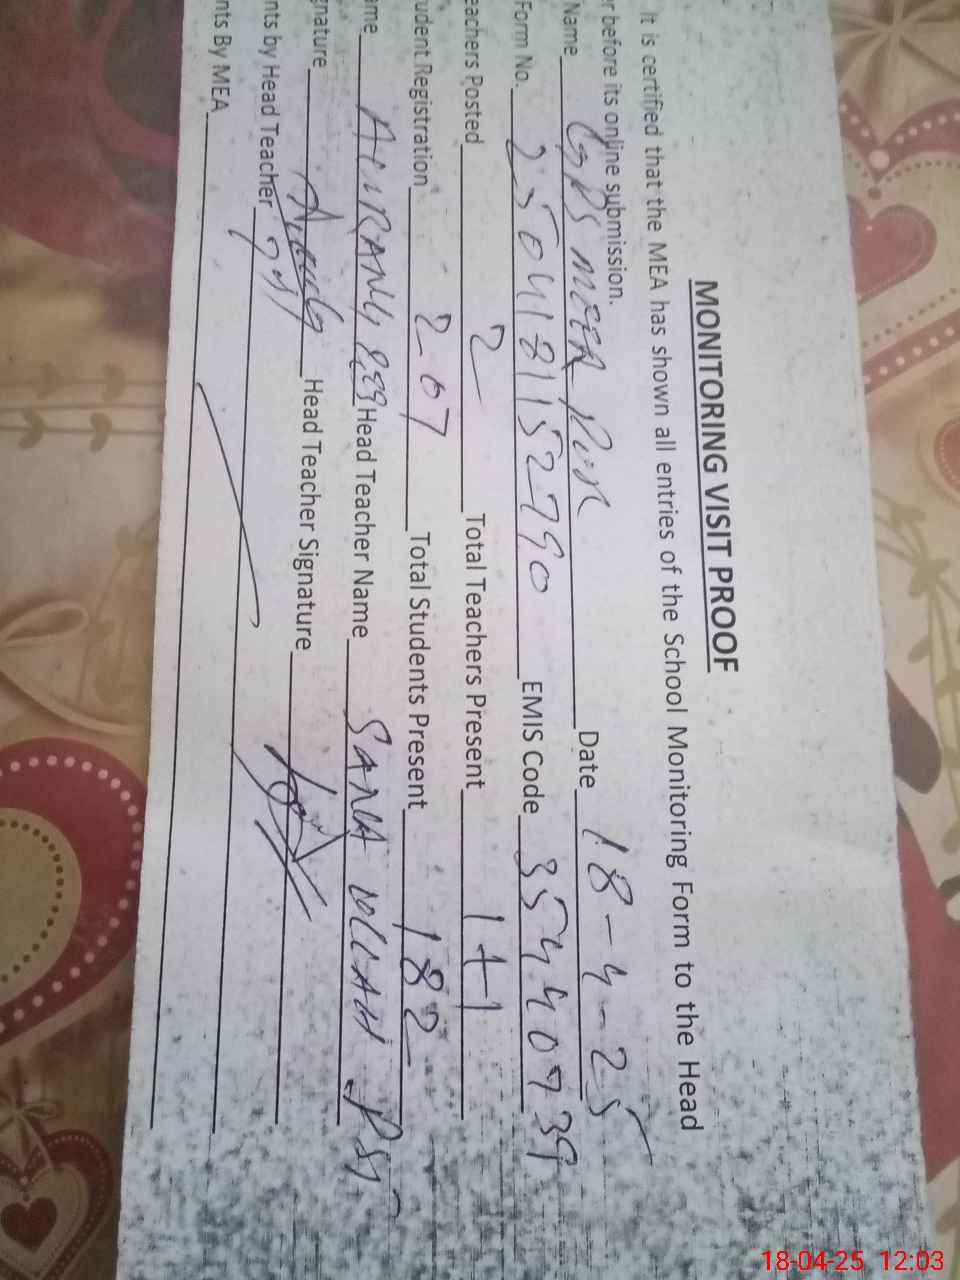 MONITORING VISIT PROOF
It is certified that the MEA has shown all entries of the School Monitoring Form to the Head
r before its online submission.
Name GPS MEER PUR Date 18-4-25
Form No. 2504181152790 EMIS Code 35440739
eachers Posted 2 Total Teachers Present 1+1
udent Registration 207 Total Students Present 182
ame Head Teacher Name SANA ULLAH PST
gnature Head Teacher Signature
nts by Head Teacher
nts By MEA
18-04-25 12:03